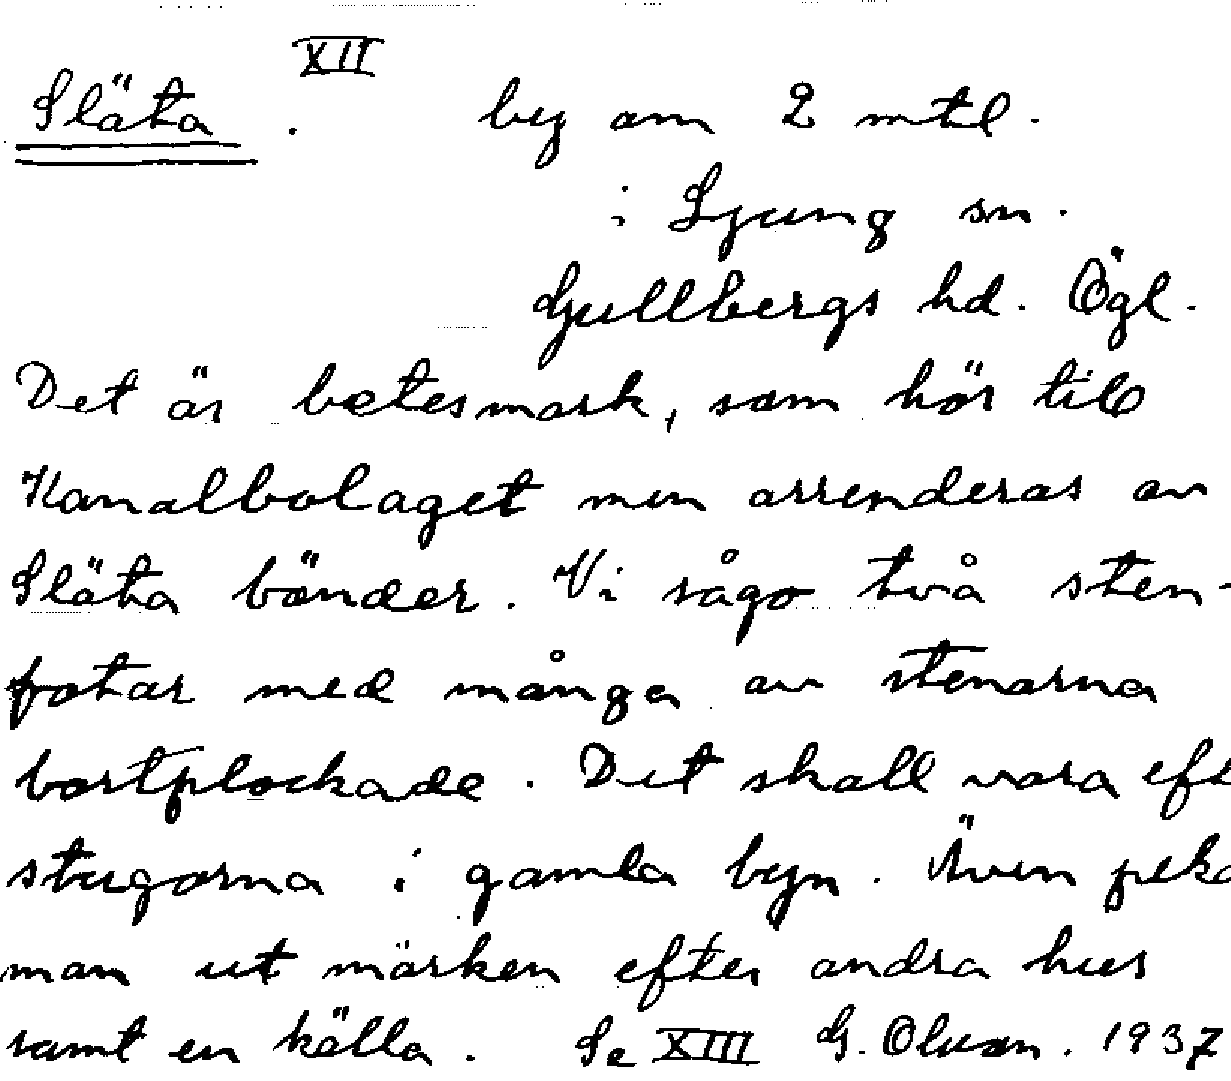 XII
Släta . by om 2 mtl.
i Ljung sn.
Gullbergs hd. Ögl.
Det är betesmark, som hör till
Kanalbolaget men arrenderas av
Släta bönder. Vi sågo två sten-
fotar med många av stenarna
bortplockade. Det skall vara eft
stugorna i gamla byn. Även peka
man ut märken efter andra hus
samt en källa. Se XIII G. Olsson. 1937